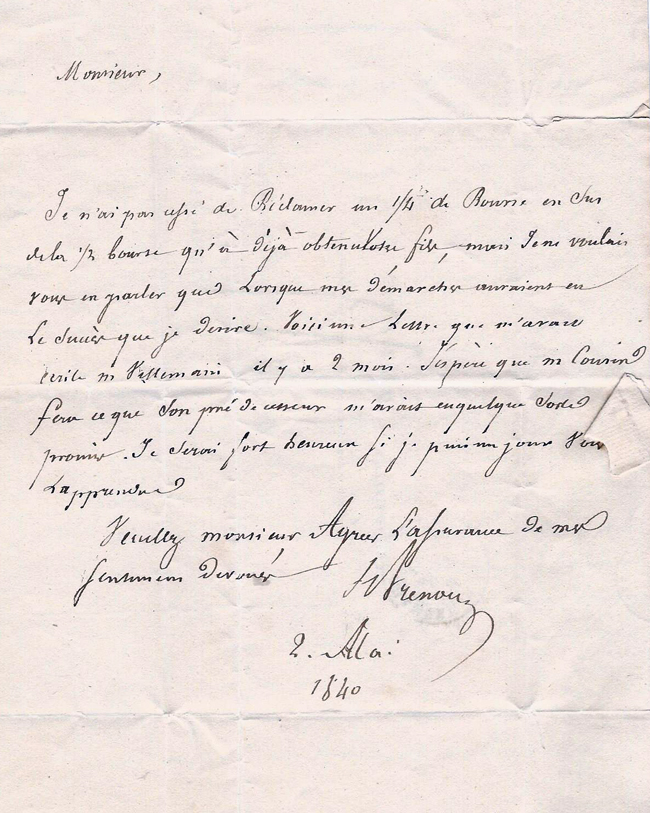 Monsieur,
Je n'ai pas cessé de Réclamer un 1/4 de Bourse en Sus
de la 1/2 bourse qu'à déjà obtenu Votre fils, mais Je ne voulais
vous en parler que Lorsque mes démarches auraient eu
Le Succès que je désire. Voici une Lettre que m'avait
écrite m Villemain il y a 2 mois. J'espère que m Cousin
fera ce que Son prédécesseur m'avait en quelque Sorte
promis. Je Serai fort heureux Si je puis un jour Vous
L'apprendre
Veuillez monsieur Agréer L'assurance de mes
Sentimens dévoués
2. Mai
1840